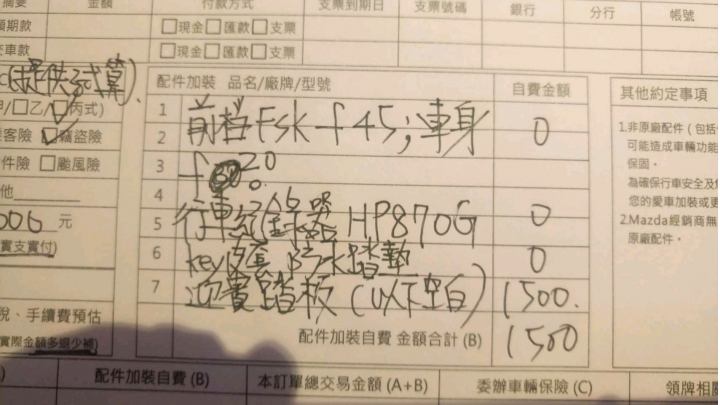 摘要 金額 付款方式 支票到期日 支票號碼 銀行 分行 帳號
期款 □現金□匯款□支票
車款 □現金□匯款□支票
(提供試算)
配件加裝 品名/廠牌/型號 自費金額 其他約定事項
/□乙/□丙式)
1 前档FSK-f45;車身 0
2
客險 竊盜險
3 f 20
件險 □颱風險
4
他
行車紀錄器 HP870G 0
5
006 元
實支實付)
6 key皮套 防水踏墊 0
7 迎賓踏板(以下空白) 1500.
稅、手續費預估
配件加裝自費 金額合計 (B) 1500
實際金額多退少補)
1.非原廠配件(包括
可能造成車輛功能
保固。
為確保行車安全及
您的愛車加裝或更
2.Mazda經銷商無
原廠配件。
配件加裝自費 (B) 本訂單總交易金額 (A+B) 委辦車輛保險 (C) 領牌相關